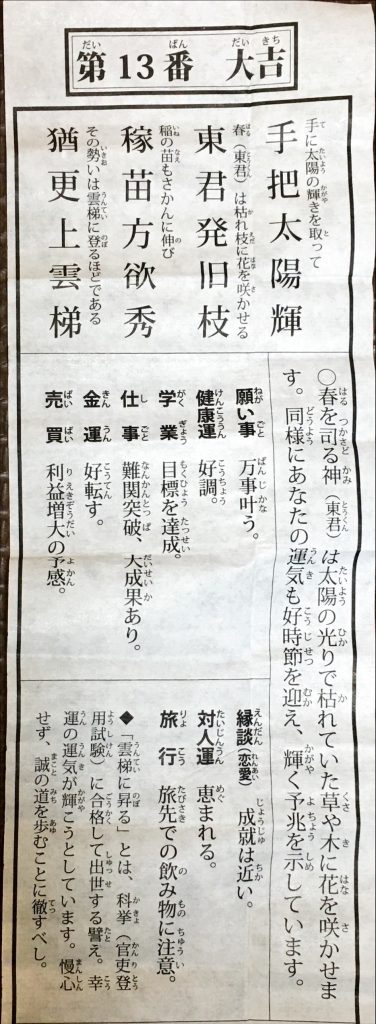 第13番 大吉
手に太陽の輝きを取って
手把太陽輝
春(東君)は枯れ枝に花を咲かせる
東君発旧枝
稲の苗もさかんに伸び
稼苗方欲秀
その勢いは雲梯に登るほどである
猶更上雲梯
○春を司る神(東君)は太陽の光りで枯れていた草や木に花を咲かせま
す。同様にあなたの運気も好時節を迎え、輝く予兆を示しています。
願い事 万事叶う。
健康運 好調。
学業 目標を達成。
仕事 難関突破、大成果あり。
金運 好転す。
売買 利益増大の予感。
縁談(恋愛) 成就は近い。
対人運 恵まれる。
旅行 旅先での飲み物に注意。
◆「雲梯に昇る」とは、科挙(官吏登
用試験)に合格して出世する譬え。幸
運の運気が輝こうとしています。慢心
せず、誠の道を歩むことに徹すべし。